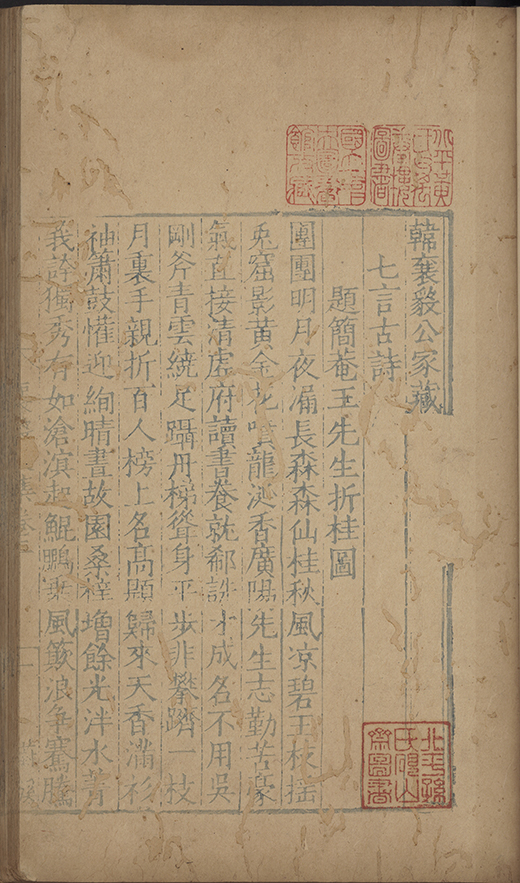 韓襄毅公家藏
七言古詩
題簡菴王先生折桂圖
團團明月夜漏長森森仙桂秋風凉碧玉枝揺
兎窟影黄金花噴龍涎香廣陽先生志勤苦豪
氣直接清虚府讀書養就郄詵才成名不用吴
剛斧青雲繞足躡丹梯聳身平步非攀躋一枝
月裏手親折百人榜上名髙顯歸來天香滿衫
袖簫鼓懽迎絢晴晝故園桑梓增餘光泮水菁
我誇獨秀有如滄溟起鯤鵬乗風簸浪争騫騰